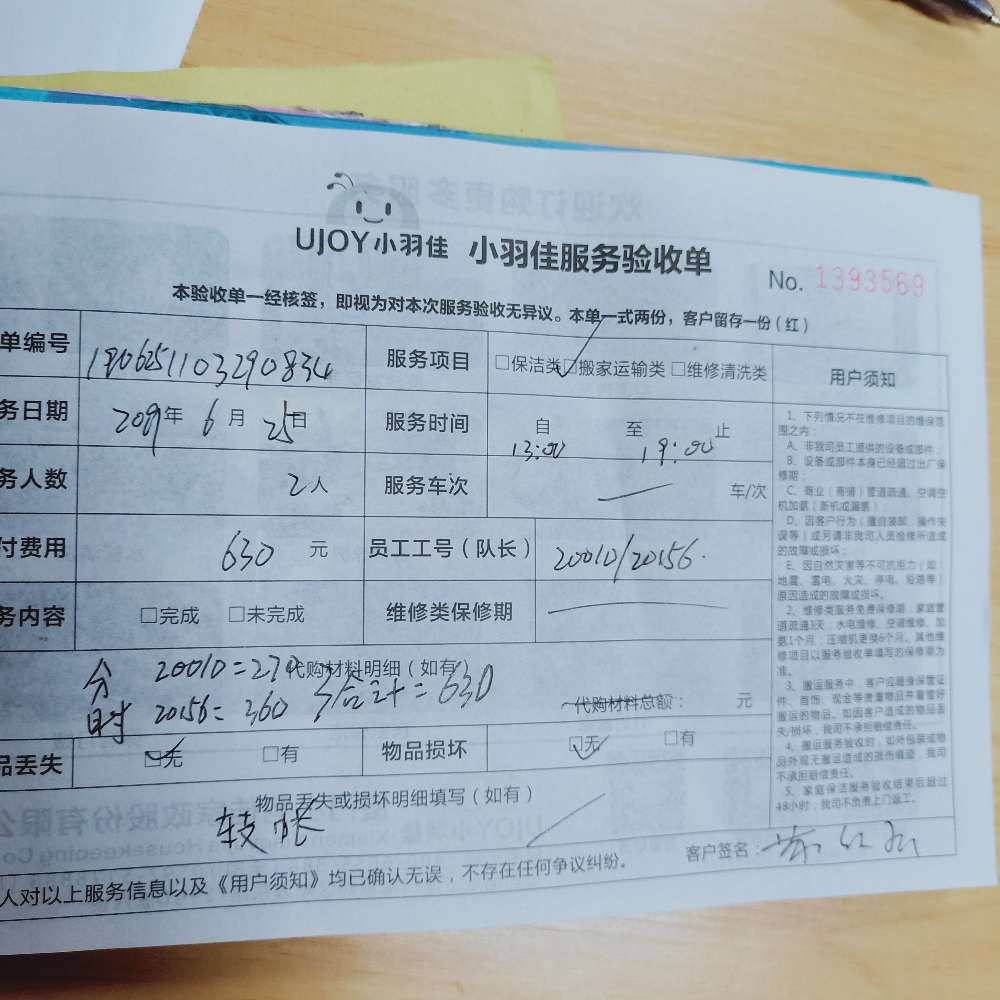 UJOY小羽佳 小羽佳服务验收单
No. 1393569
本验收单一经核签，即视为对本次服务验收无异议。本单一式两份，客户留存一份（红）
单编号 1906251103290834 服务项目 □保洁类 ☑搬家运输类 □维修清洗类
务日期 2019年 6月 25日 服务时间 自 13:00 至 19:00 止
务人数 2人 服务车次 车/次
付费用 630 元 员工工号（队长） 20010/20156
务内容 □完成 □未完成 维修类保修期
代购材料明细（如有）
分 20010=270
时 20156=360 合计=630
代购材料总额： 元
品丢失 ☑无 □有 物品损坏 ☑无 □有
物品丢失或损坏明细填写（如有）
转帐
客户签名：
人对以上服务信息以及《用户须知》均已确认无误，不存在任何争议纠纷。
用户须知
1、下列情况不在维修项目的维保范
围之内：
A、非我司员工提供的设备或部件；
B、设备或部件本身已经超过出厂保
修期；
C、商业（商铺）管道疏通、空调空
机加氨（新机或漏氨）；
D、因客户行为（擅自装卸、操作失
误等）或另请非我司人员检修所造成
的故障或损坏；
E、因自然灾害等不可抗原力（如：
地震、雷电、火灾、停电、短路等）
原因造成的故障或损坏。
2、维修类服务免费保修期：家庭管
道疏通3天；水电维修、空调维修、加
氨1个月；压缩机更换6个月。其他维
修项目以服务验收单填写的保修期为
准。
3、搬运服务中，客户应随身保管证
件、首饰、现金等贵重物品并看管好
搬运的物品。如因客户造成的物品丢
失/损坏，我司不承担赔偿责任。
4、搬运服务验收时，如外包装或物
品外观无搬运造成的损伤痕迹，我司
不承担赔偿责任。
5、家庭保洁服务验收结束后超过
48小时，我司不负责上门返工。